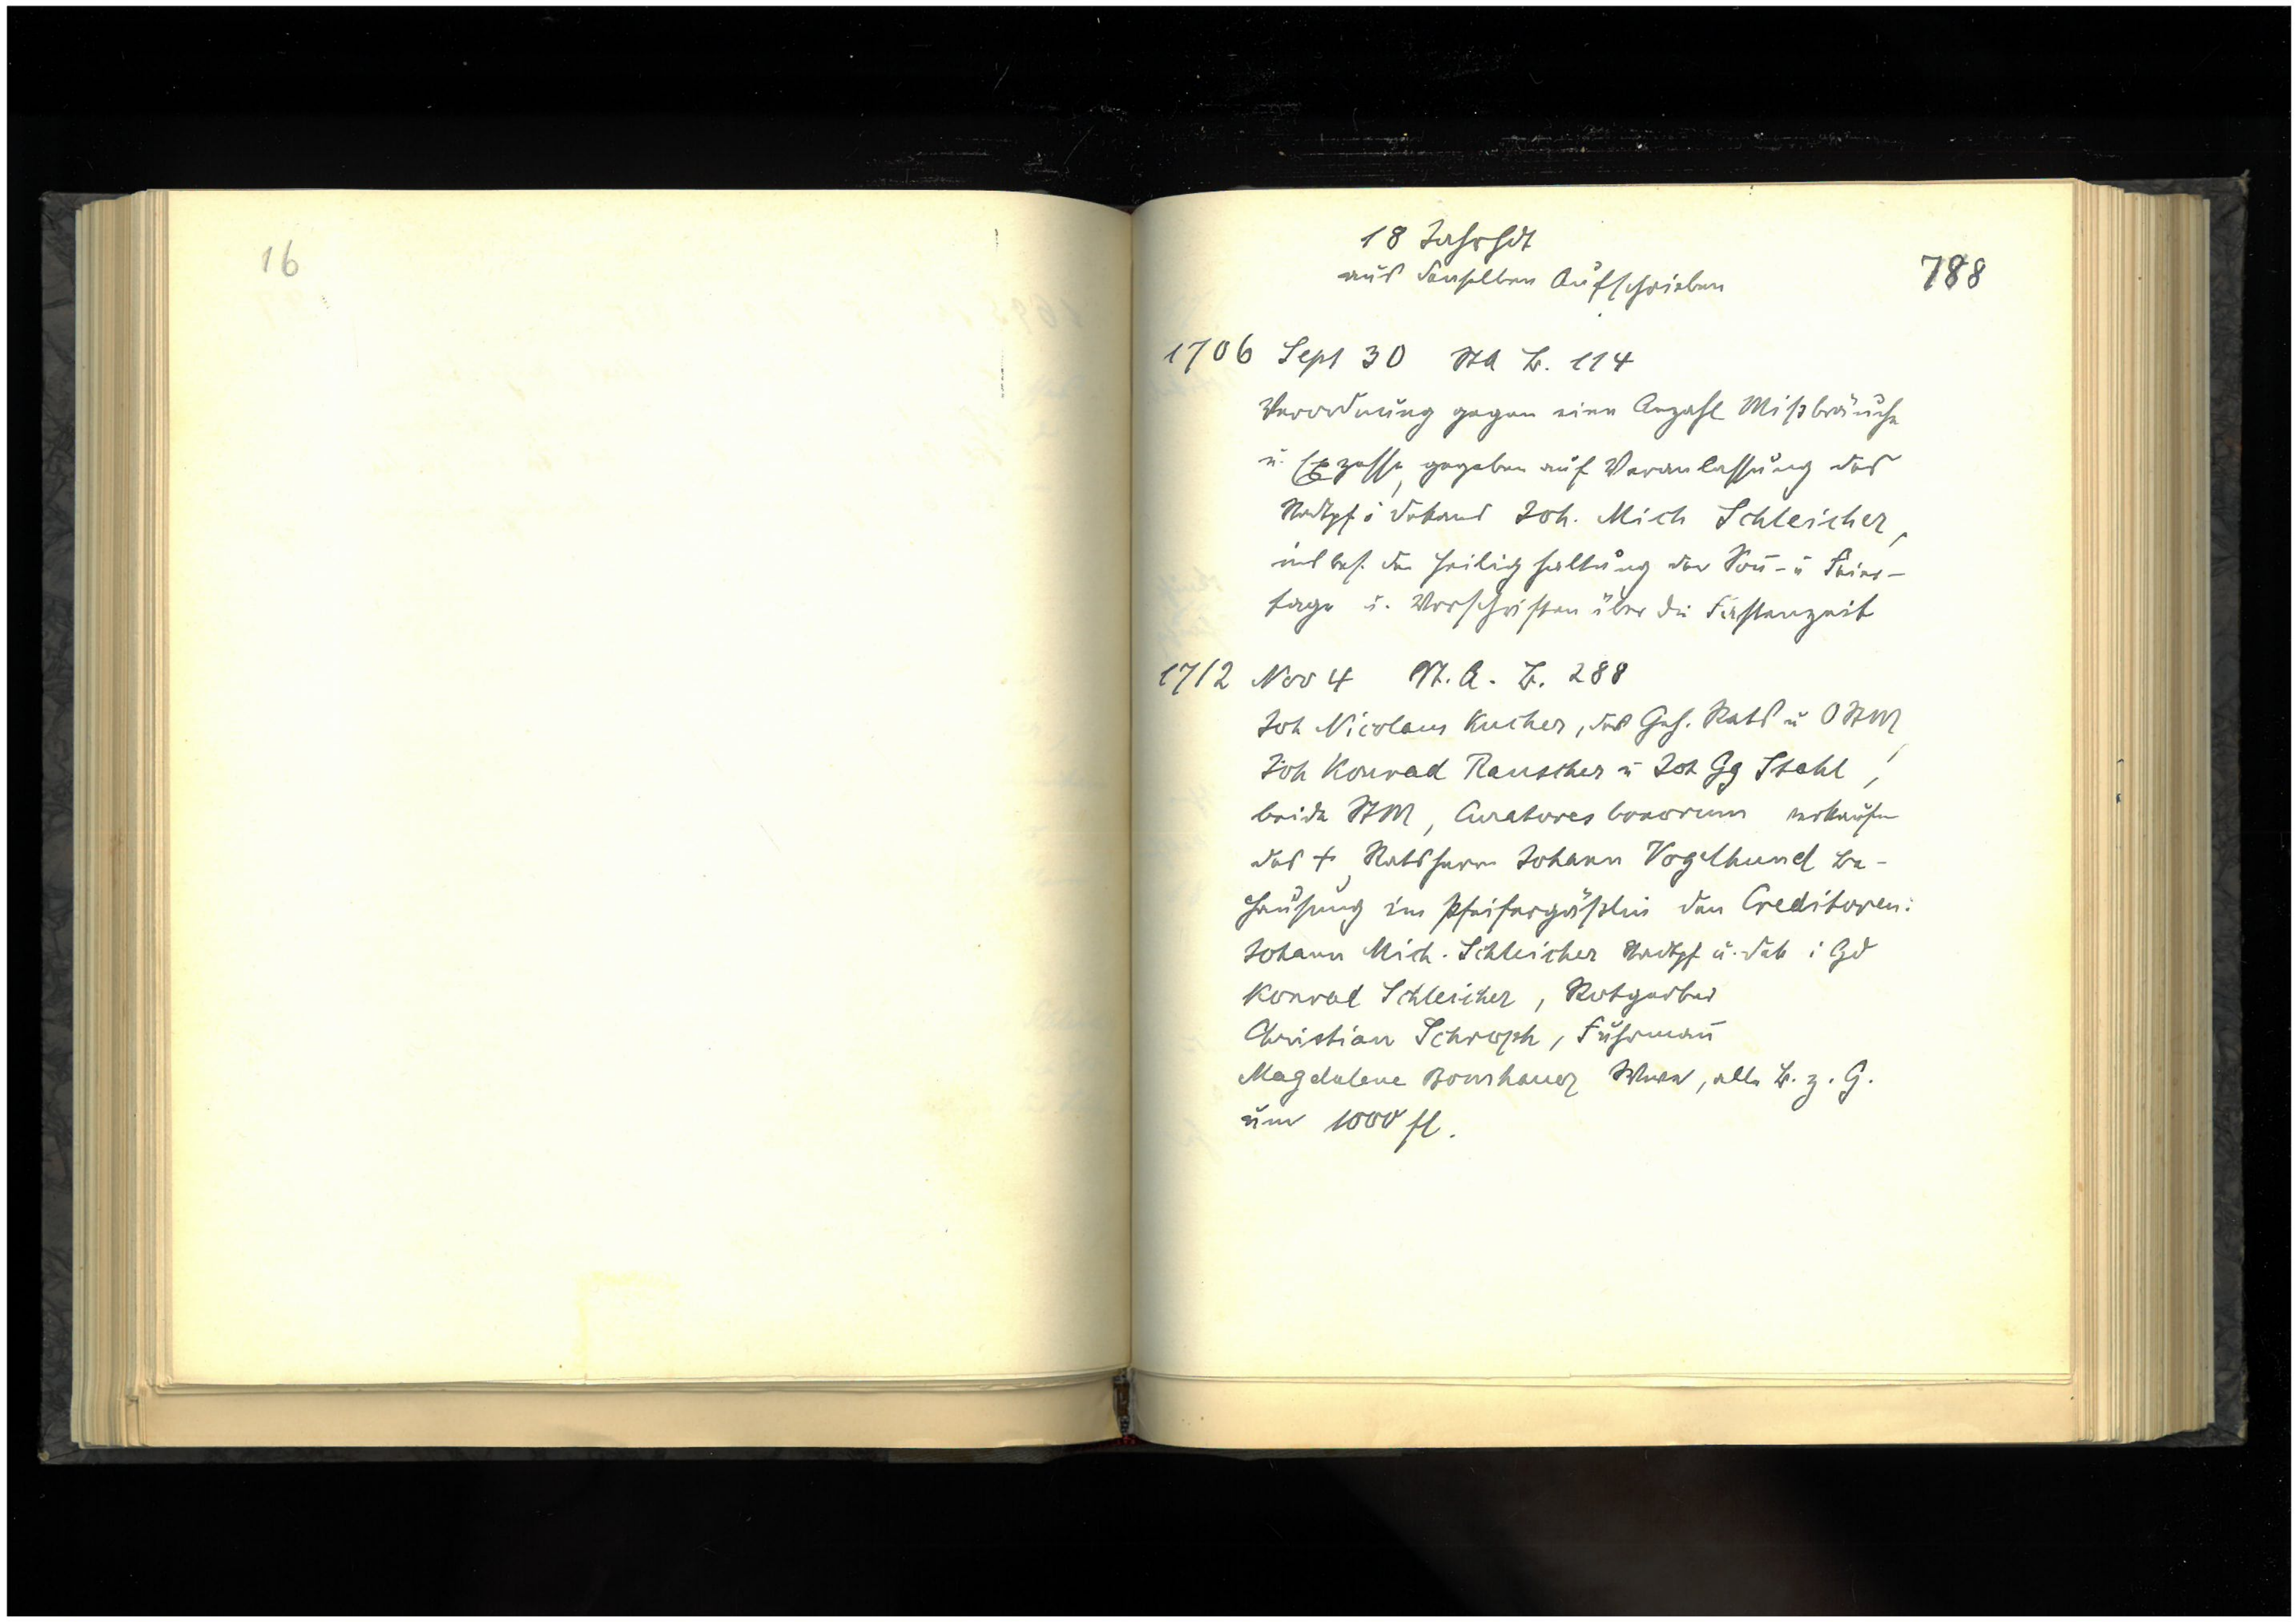 16
18 Jahrhdt
aus denselben Aufschrieben
788
1706 Sept 30 StA B. 114
Verordnung gegen eine Anzahl Mißbräuche
u. Exzesse, gegeben auf Veranlassung des
Stadtpf u Dekans Joh. Mich Schleicher,
insbes. die Heilighaltung der Son̄- u Feier-
tage u. Vorschriften über die Fastenzeit
1712 Nov 4 St. A. B. 288
Joh Nicolaus Kucher, des Geh. Rats u OStM
Joh Konrad Rauscher u Joh Gg Stahl,
beide StM, Curatores bonorum verkaufen
des + Ratsherrn Johann Vogelhund Be-
hausung im Pfeifergäßlin den Creditoren:
Johann Mich. Schleicher Stadtpf u. Dek i Gd
Konrad Schleicher, Rotgerber
Christian Schroph, Fuhrman̄
Magdalene Wwe, alle B. z. G.
um 1000 fl.